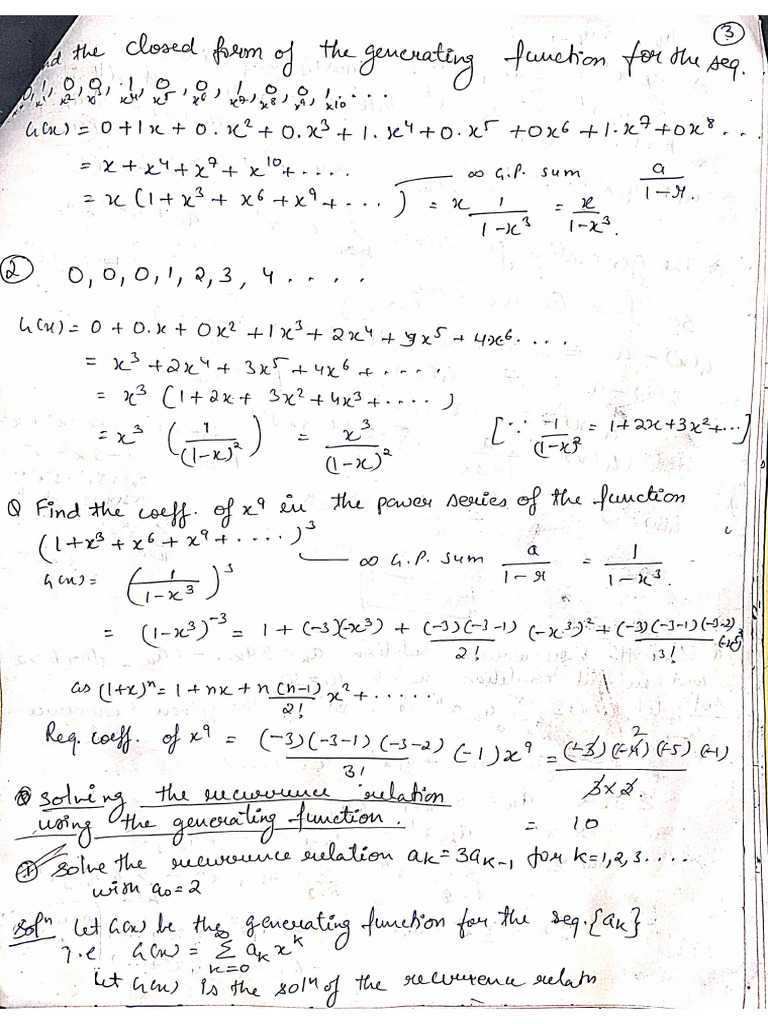 ③
the closed form of the generating function for the seq.
0, 1, 0, 0, 1, 0, 0, 1, 0, 0, 1. ...
x¹ x² x³ x⁴ x⁵ x⁶ x⁷ x⁸ x⁹ x¹⁰
G(x) = 0 + 1x + 0.x² + 0.x³ + 1.x⁴ + 0.x⁵ + 0x⁶ + 1.x⁷ + 0x⁸ ...
= x + x⁴ + x⁷ + x¹⁰ + .... ∞ G.P. sum a/(1-r).
= x (1 + x³ + x⁶ + x⁹ + ...) = x 1/(1-x³) = x/(1-x³).
② 0, 0, 0, 1, 2, 3, 4 ....
G(x) = 0 + 0.x + 0x² + 1x³ + 2x⁴ + 3x⁵ + 4x⁶....
= x³ + 2x⁴ + 3x⁵ + 4x⁶ + .....
= x³ (1 + 2x + 3x² + 4x³ + ....)
= x³ (1/(1-x)²) = x³/(1-x)² [∵ 1/(1-x)² = 1+2x+3x²+...]
Q Find the coeff. of x⁹ in the power series of the function
(1 + x³ + x⁶ + x⁹ + ....)³
G(x) = (1/(1-x³))³ ∞ G.P. sum a/(1-r) = 1/(1-x³).
= (1-x³)⁻³ = 1 + (-3)(-x³) + (-3)(-3-1)/2! (-x³)² + (-3)(-3-1)(-3-2)/3! (-x³)³
as (1+x)ⁿ = 1 + nx + n(n-1)/2! x² + ......
Req. coeff. of x⁹ = (-3)(-3-1)(-3-2)/3! (-1) x⁹ = (-3)(-4)(-5)(-1)/3×2.
2
Solving the recurrence relation
using the generating function. = 10
① Solve the recurrence relation aₖ = 3aₖ₋₁ for k=1,2,3....
with a₀ = 2
Solⁿ Let G(x) be the generating function for the seq. {aₖ}
i.e G(x) = ∞ Σ k=0 aₖ xᵏ
Let G(x) is the solⁿ of the recurrence relatn